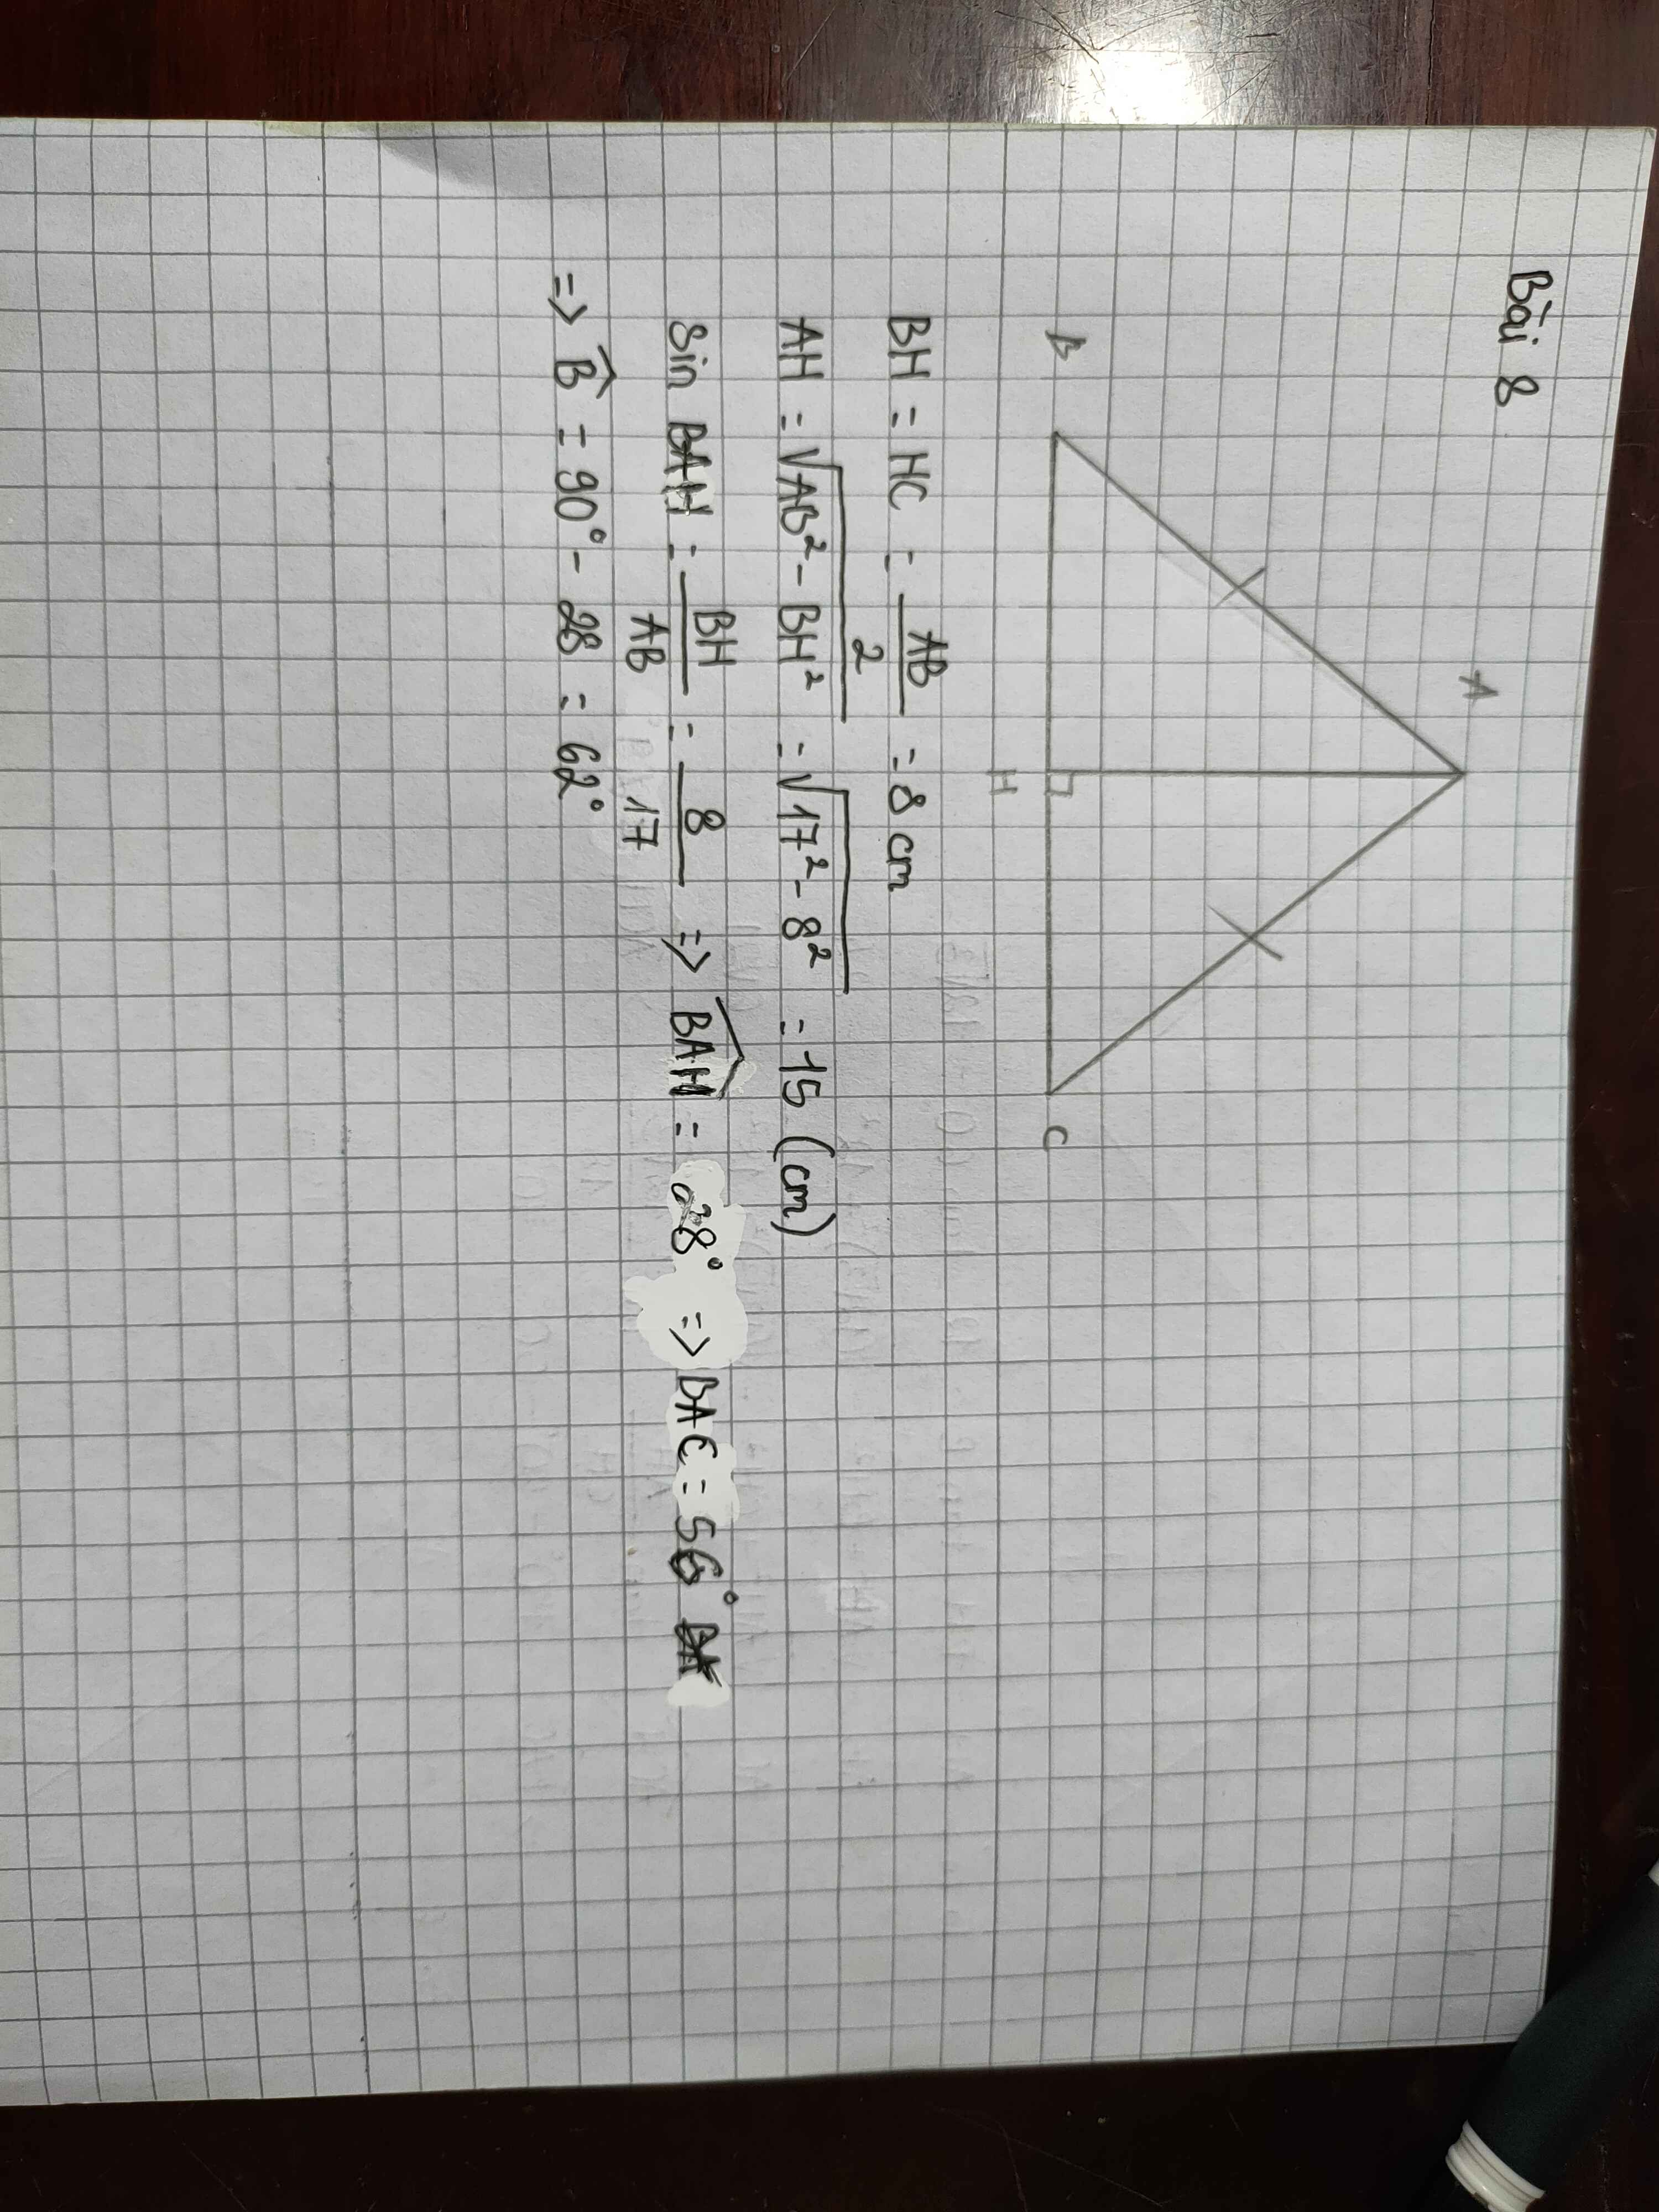 Bài 8
A
B
H
C
BH = HC = AB/2 = 8 cm
AH = √(AB² - BH²) = √(17² - 8²) = 15 (cm)
Sin BAH = BH/AB = 8/17 => \widehat{BAH} = 28° => BAC = 56°
=> \widehat{B} = 90° - 28 = 62°